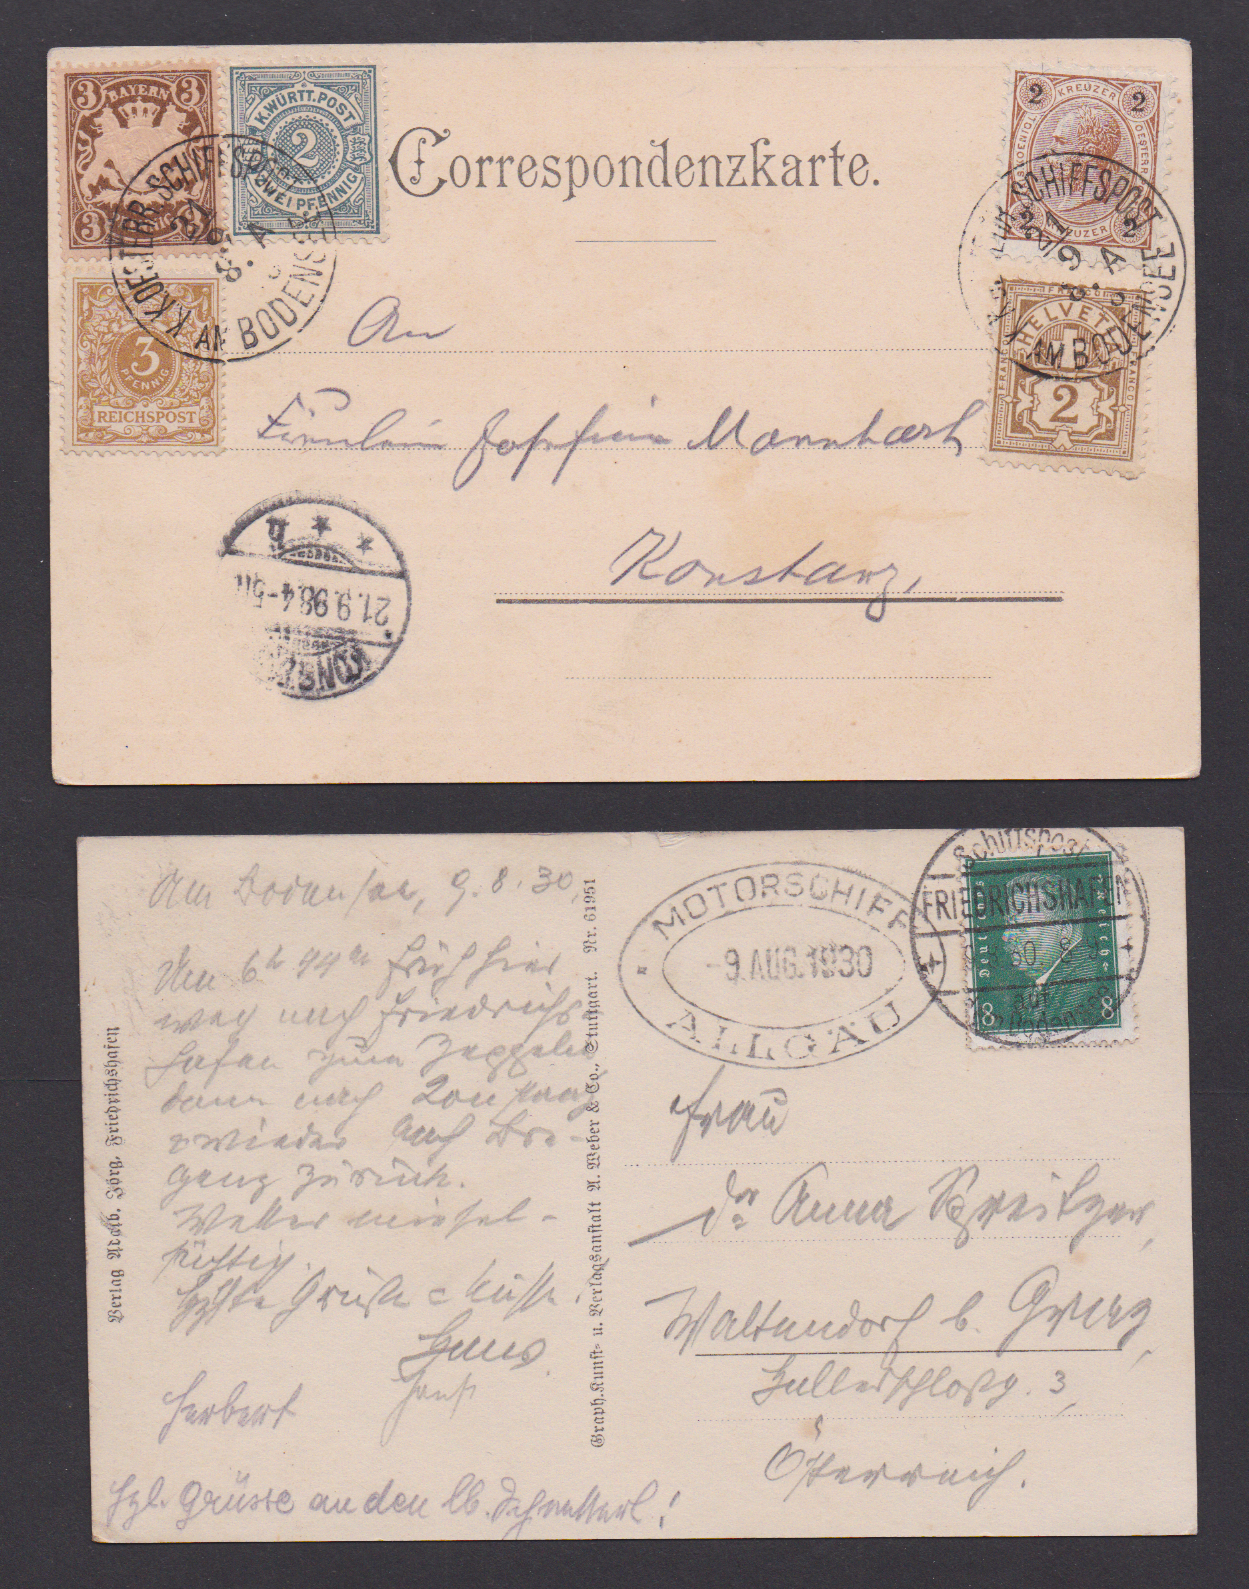 3 BAYERN 3
3 3
K.WÜRTT.POST
2
ZWEI PFENNIG
Correspondenzkarte.
2 KREUZER 2
2 KREUZER 2
K.K.OESTERR.SCHIFFSPOST
21/9
98. A
AM BODENSEE
SCHIFFSPOST
21/9
A
AM BODENSEE
3
PFENNIG
REICHSPOST
FRANCO
HELVETIA
2
FRANCO
FRANCO
An
Fräulein Josefine Mannhart
Konstanz,
KONSTANZ
21.9.98.4-5N.
Am Bodensee, 9.8.30,
Um 6h 44m früh hier
weg nach Friedrichs-
hafen zum Zeppelin
dann nach Konstanz
wieder nach Bre-
genz zurück.
Wetter
Grüße Küsse!
Hans
Herbert
Hzl. Grüsse an den lb.
Verlag Adalb. Jörg, Friedrichshafen
Graph.Kunst- u. Verlagsanstalt A. Weber & Co., Stuttgart. Nr. 61951
MOTORSCHIFF
-9.AUG.1930
ALLGÄU
Schiffspost
FRIEDRICHSHAFEN
30. 8-9
auf
dem Bodensee
Deutsches Reich
8 8
Frau
Dr Anna
Waltendorf b. Graz,
3,
Österreich.